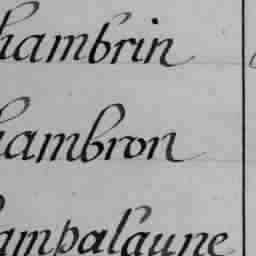 hambrin
hambron
ampalaune